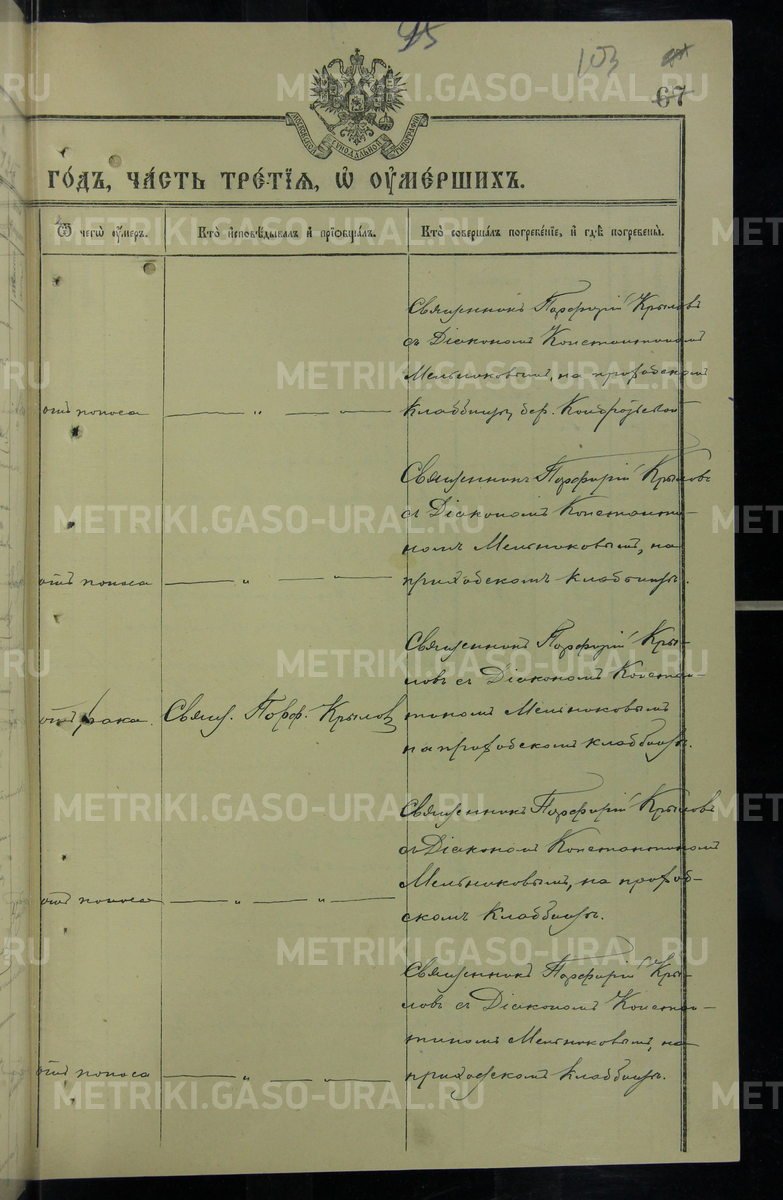 45
103
67
МОСКОВСКОЙ СѴНОДАЛЬНОЙ ТИПОГРАФІИ
ГО́ДЪ, ЧА́СТЬ ТРЕ́ТІѦ, Ѡ ОУ҆МЕ́РШИХЪ.
Ѿ чегѡ̀ ᲂу҆́меръ.
Кто̀ и҆сповѣ́дывалъ и҆ прїѡбща́лъ.
Кто̀ соверша́лъ погребе́нїе, и҆ гдѣ̀ погребены̀.
отъ поноса
— „ — „ —
Священникъ Порфирій Крыловъ
съ Діакономъ Константиномъ
Мельниковымъ, на приходскомъ
кладбищѣ дер.
отъ поноса
— „ — „ —
Священникъ Порфирій Крыловъ
съ Діакономъ Константи-
номъ Мельниковымъ, на
приходскомъ кладбищѣ.
отъ рака.
Свящ. Порф. Крыловъ
Священникъ Порфирій Кры-
ловъ съ Діакономъ Констан-
тиномъ Мельниковымъ
на приходскомъ кладбищѣ.
отъ поноса
— „ — „ —
Священникъ Порфирій Крыловъ
съ Діакономъ Константиномъ
Мельниковымъ, на приход-
скомъ кладбищѣ.
отъ поноса
— „ — „ —
Священникъ Порфирій Кры-
ловъ съ Діакономъ Констан-
тиномъ Мельниковымъ, на
приходскомъ кладбищѣ.
METRIKI.GASO-URAL.RU